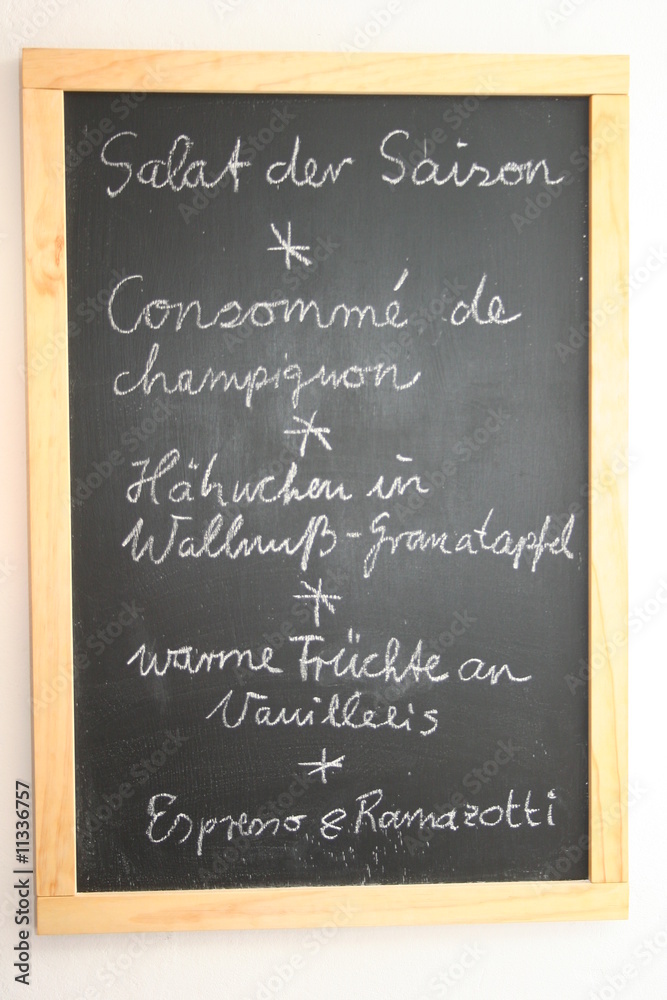 Salat der Saison
*
Consommé de
champignon
*
Hähnchen in
Wallnuß-Granatapfel
*
warme Früchte an
Vanilleeis
*
Espresso & Ramazotti
Adobe Stock | #11336757